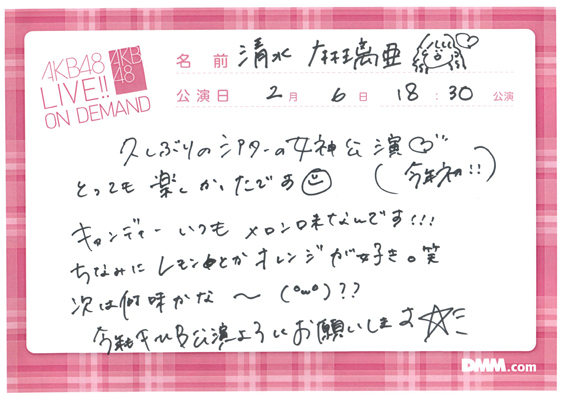 AKB48
LIVE!!
ON DEMAND
AKB
48
名前 清水 麻璃亜
公演日 2月 6日 18:30 公演
久しぶりのシアターの女神公演♡
とっても楽しかったです☺
(今年初!!)
キャンディー いつも メロン味なんです!!!
ちなみに レモン味とか オレンジが好き。笑
次は何味かな〜 (°ω°)??
今年もチームB公演よろしくお願いします☆
DMM.com